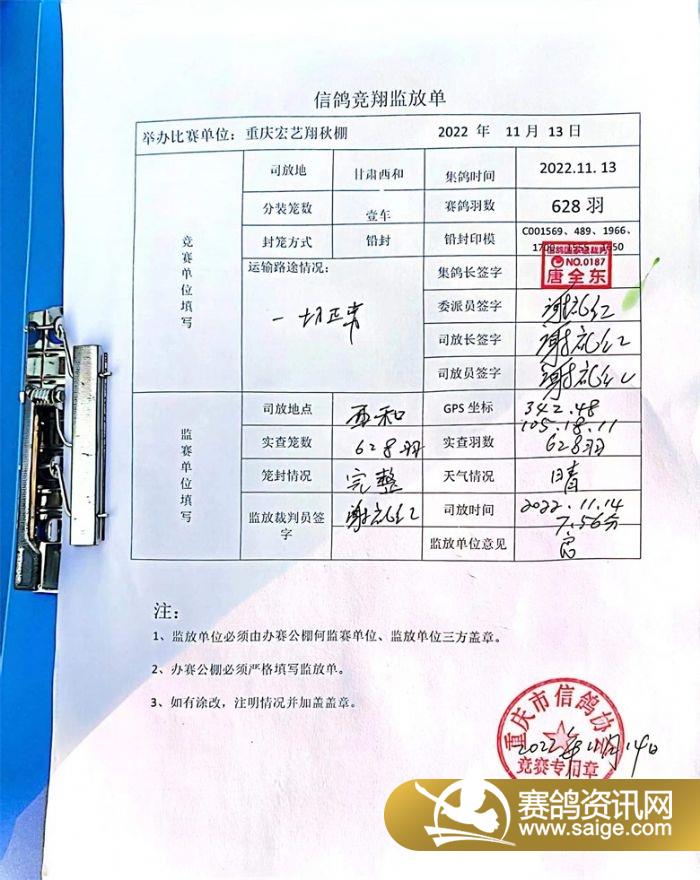 信鸽竞翔监放单
举办比赛单位：重庆宏艺翔秋棚 2022 年 11 月 13 日
竞赛单位填写
司放地 甘肃西和 集鸽时间 2022.11.13
分装笼数 壹车 赛鸽羽数 628 羽
封笼方式 铅封 铅封印模 C001569、489、1966、
运输路途情况： 集鸽长签字
NO.0187
唐全东
一切正常
委派员签字
司放长签字
司放员签字
监赛单位填写
司放地点 西和 GPS 坐标 342.48
105.18.11
实查笼数 628羽 实查羽数 628羽
笼封情况 完整 天气情况 晴
监放裁判员签字 司放时间 2022.11.14
7.56分
监放单位意见
注：
1、监放单位必须由办赛公棚何监赛单位、监放单位三方盖章。
2、办赛公棚必须严格填写监放单。
3、如有涂改，注明情况并加盖盖章。
重庆市信鸽协
竞赛专用章
2022年11月14日
赛鸽资讯网
www.saige.com